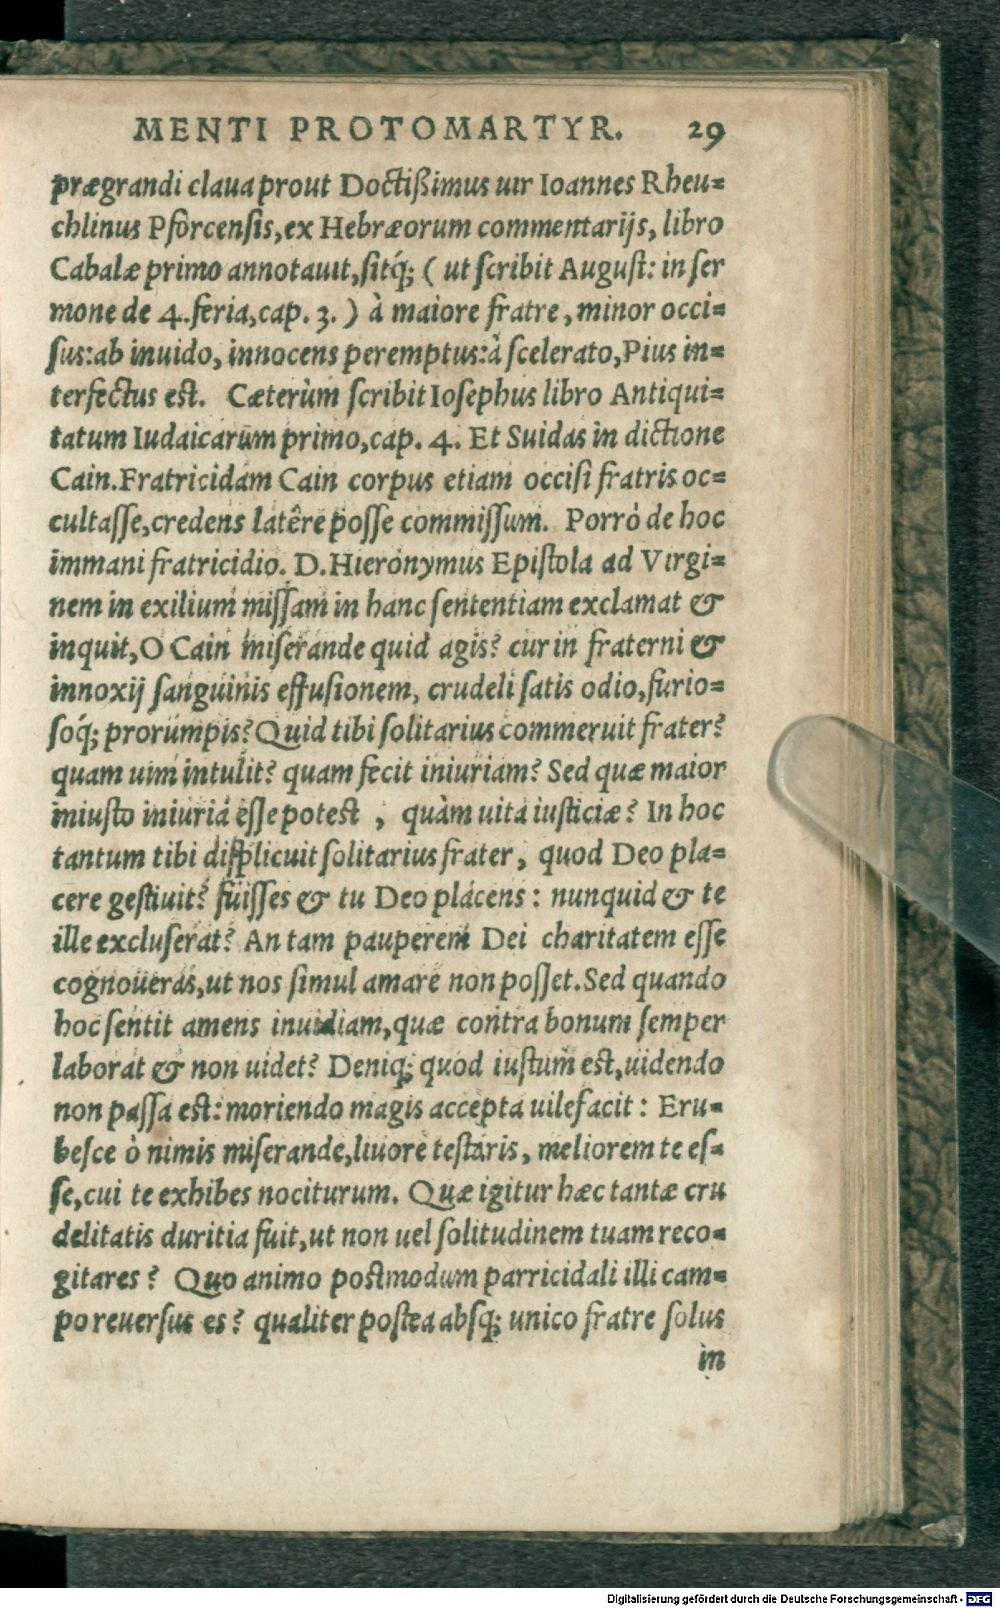 MENTI PROTOMARTYR. 29
prægrandi claua prout Doctißimus uir Ioannes Rheu=
chlinus Pforcensis, ex Hebræorum commentarijs, libro
Cabalæ primo annotauit, sitq́; ( ut scribit August: in ser
mone de 4. feria, cap. 3. ) à maiore fratre, minor occi=
sus: ab inuido, innocens peremptus: à scelerato, Pius in=
terfectus est. Cæterùm scribit Iosephus libro Antiqui=
tatum Iudaicarum primo, cap. 4. Et Suidas in dictione
Cain. Fratricidam Cain corpus etiam occisi fratris oc=
cultasse, credens latêre posse commissum. Porrò de hoc
immani fratricidio. D. Hieronymus Epistola ad Virgi=
nem in exilium missam in hanc sententiam exclamat &
inquit, O Cain miserande quid agis? cur in fraterni &
innoxij sanguinis effusionem, crudeli satis odio, furio=
soq́; prorumpis? Quid tibi solitarius commeruit frater?
quam uim intulit? quam fecit iniuriam? Sed quæ maior
iniusto iniuria esse potest, quàm uita iusticiæ? In hoc
tantum tibi displicuit solitarius frater, quod Deo pla=
cere gestiuit? fuisses & tu Deo placens: nunquid & te
ille excluserat? An tam pauperem Dei charitatem esse
cognoueras, ut nos simul amare non posset. Sed quando
hoc sentit amens inuidiam, quæ contra bonum semper
laborat & non uidet? Deniq; quod iustum est, uidendo
non passa est: moriendo magis accepta uilefacit: Eru=
besce ò nimis miserande, liuore testaris, meliorem te es=
se, cui te exhibes nociturum. Quæ igitur hæc tantæ cru
delitatis duritia fuit, ut non uel solitudinem tuam reco=
gitares? Quo animo postmodum parricidali illi cam=
po reuersus es? qualiter postea absq; unico fratre solus
in
Digitalisierung gefördert durch die Deutsche Forschungsgemeinschaft - DFG